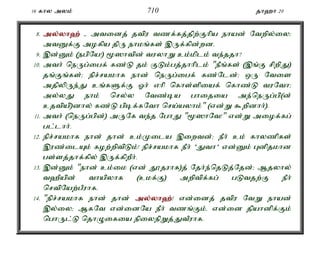 16 கால அலம் 710 தாஹா 20
8. அல்லாஹ் - அவனைத் தவிர வணக்கத்திற்குரிய நாயன் வேறில்லை;
அவனுக்கு அழகிய திரு நாமங்கள் இருக்கின்றன.
9. இன்னும் (நபியே!) மூஸாவின் வரலாறு உம்மிடம் வந்ததா?
10. அவர் நெருப்பைக் கண்டு தம் குடும்பத்தாரிடம் "நீங்கள் (இங்கு சிறிது)
தங்குங்கள்; நிச்சயமாக நான் நெருப்பைக் கண்டேன்; ஒரு வேளை
அதிலிருந்து உங்களுக்கு ஓர் எரி கொள்ளியைக் கொண்டு வரவோ;
அல்லது நாம் செல்ல வேண்டிய பாதையை அந்நெருப்பி(ன்
உதவியி)னால் கண்டு பிடிக்கவோ செய்யலாம்" (என்று கூறினார்).
11. அவர் (நெருப்பின்) அருகே வந்த போது "மூஸாவே!" என்று அழைக்கப்
பட்டார்.
12. நிச்சயமாக நான் தான் உம்முடைய இறைவன்; நீர் உம் காலணிகள்
இரண்டையும் கழற்றிவிடும்! நிச்சயமாக நீர் 'துவா' என்னும் புனிதமான
பள்ளத்தாக்கில் இருக்கிறீர்.
13. இன்னும் "நான் உம்மை (என் தூதராகத்) தேர்ந்தெடுத்தேன்; ஆதலால்
வஹீயின் வாயிலாக (உமக்கு) அறிவிக்கப் படுவதற்கு நீர்
செவியேற்பீராக.
14. "நிச்சயமாக நான் தான் அல்லாஹ்! என்னைத் தவிர வேறு நாயன்
இல்லை; ஆகவே என்னையே நீர் வணங்கும், என்னை தியானிக்கும்
பொருட்டு தொழுகையை நிலைநிறுத்துவீராக.